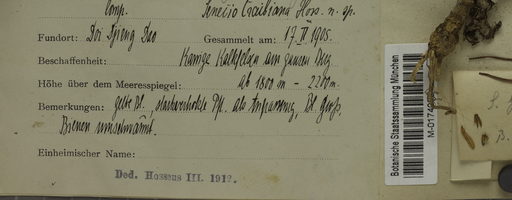 Comp. Senecio Craibiana Hoss. n. sp.
Fundort: Doi Djieng Dao Gesammelt am: 17. II 1905.
Beschaffenheit Kalkfelsen am ganzen Berg
Höhe über dem Meeresspiegel: ab 1800 m - 2200 m.
Bemerkungen: gelbe Bl. Pfl. als Bl. groß,
Bienen umschwärmt.
Einheimischer Name:
Ded. Hosseus III. 1912.
Botanische Staatssammlung München
S.
B.